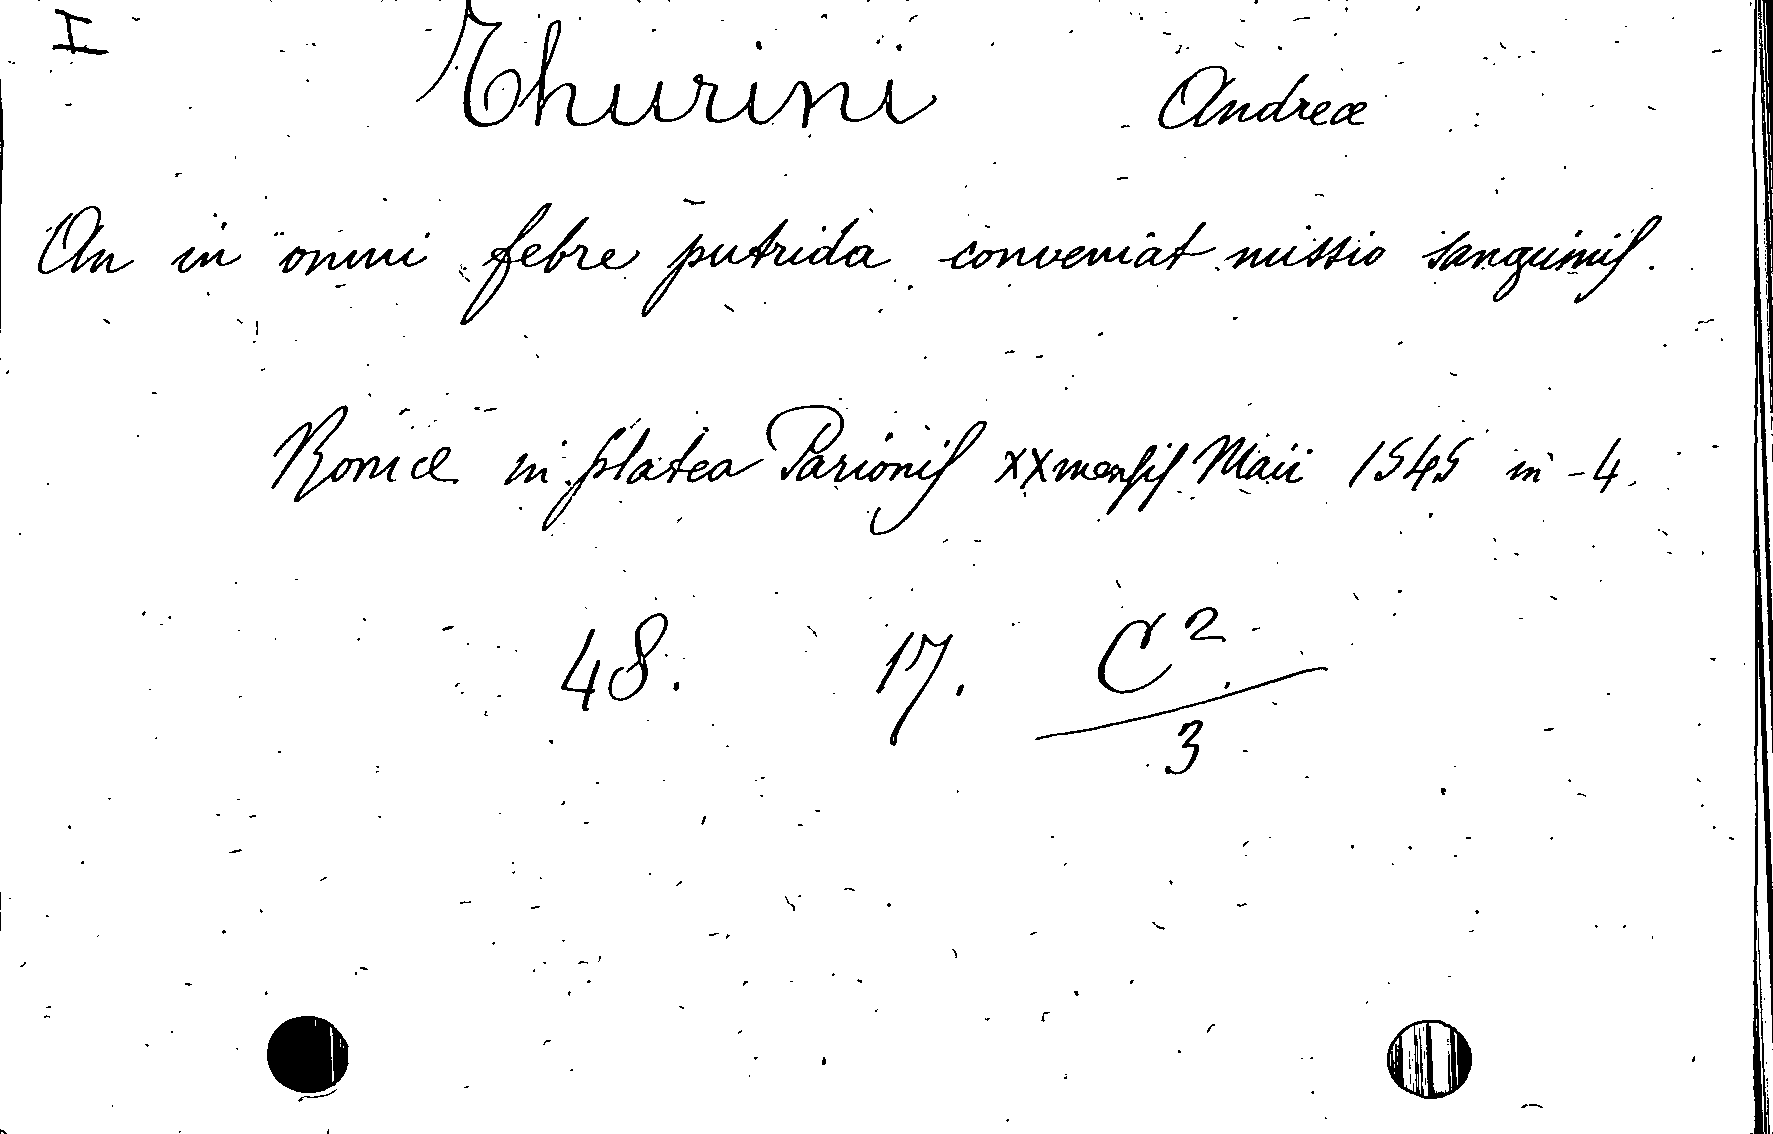 I
Thurini Andreæ
An in omni febre putrida conveniat missio sanguinis.
Romæ in platea Parionis XX mensis Maii 1545 in-4.
48. 17. C 2.
3